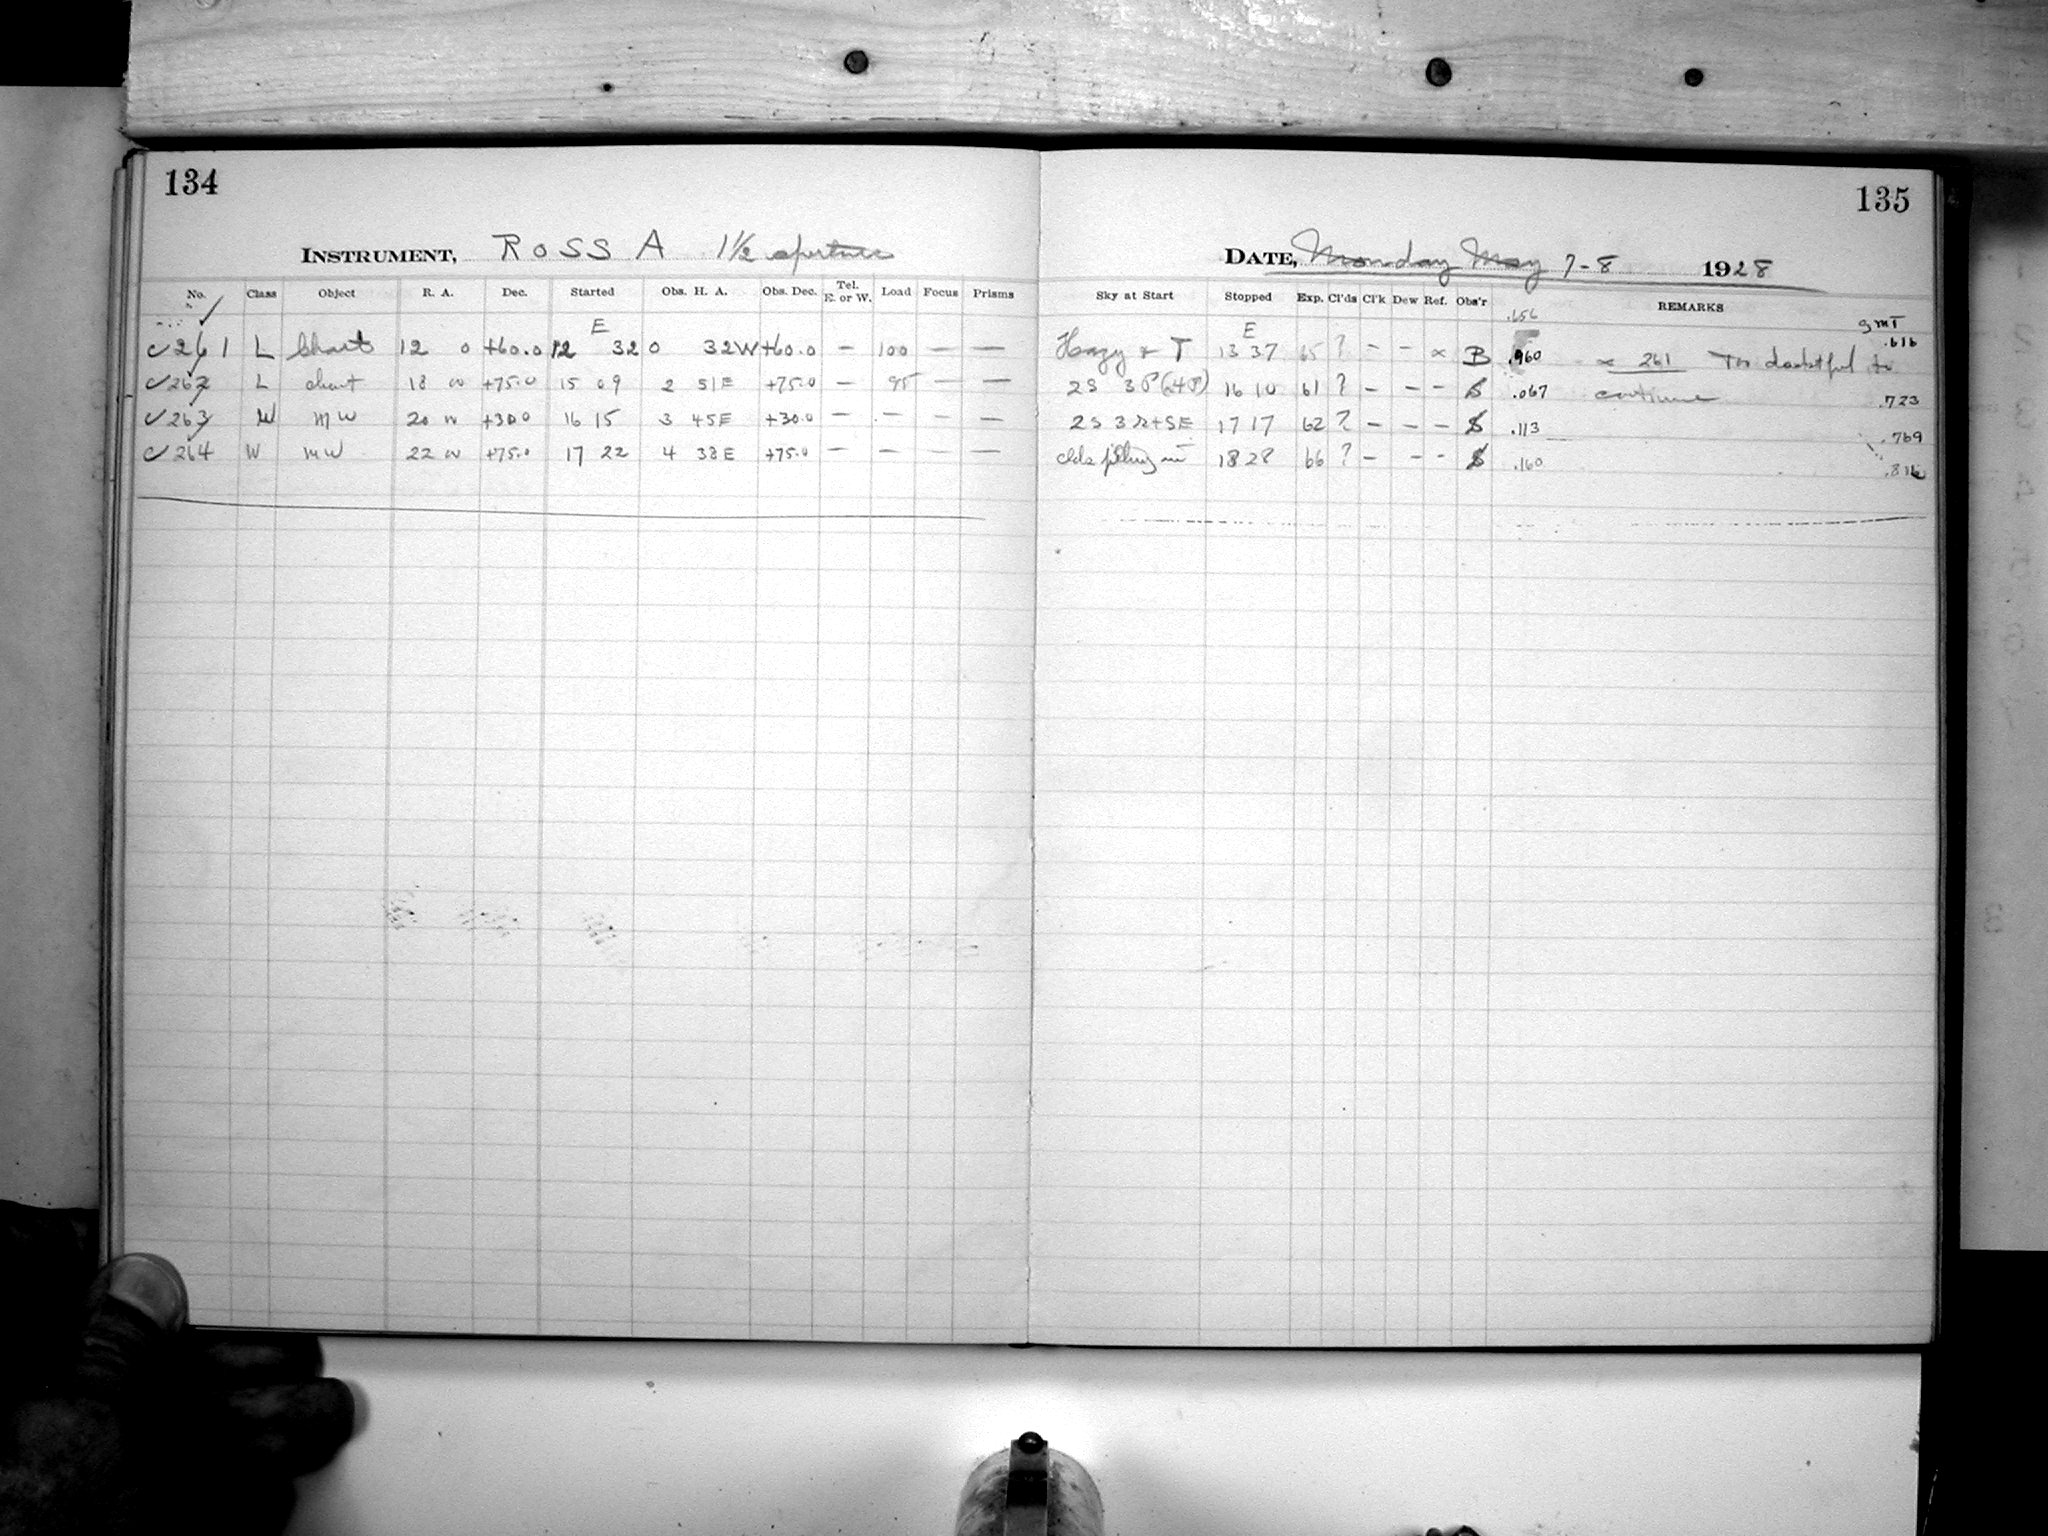 134
INSTRUMENT, ROSS A 1½ aperture
No. Class Object R. A. Dec. Started Obs. H. A. Obs. Dec. Tel. E. or W. Load Focus Prisms
E
✓261 L Chart 12 0 +60.0 12 32 0 32W +60.0 — 100 — —
✓262 L chart 18 0 +75.0 15 09 2 51E +75.0 — 95 — —
✓263 W MW 20 0 +30.0 16 15 3 45E +30.0 — — — —
✓264 W MW 22 0 +75.0 17 22 4 38E +75.0 — — — —
135
DATE, Monday May 7-8 1928
Sky at Start Stopped Exp. Cl'ds Cl'k Dew Ref. Obs'r REMARKS
.656 GMT
E .616
Hazy & T 13 37 65 ? – – × B .960 × 261 Too doubtful to
2S 3P (4P) 16 10 61 ? – – – .067 continue .723
17 17 62 ? – – – .113 .769
clds filling in 18 28 66 ? – – – .160 .816